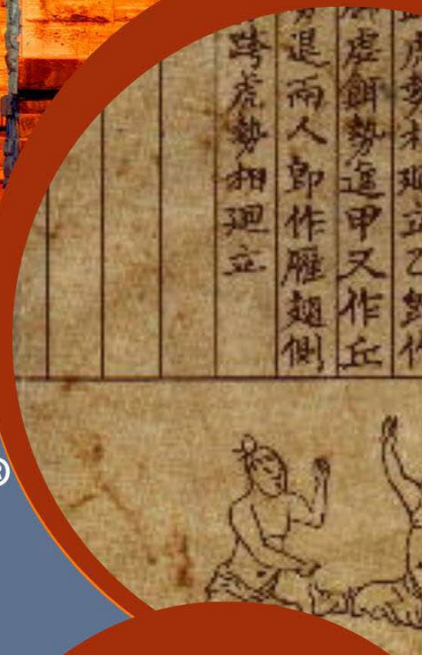 虎勢相廻立乙即作
虛餌勢進甲又作丘
退兩人即作雁翅側
跨虎勢相廻立
®